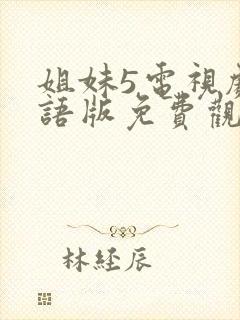 姐妹5電視
語版免費觀
林経辰